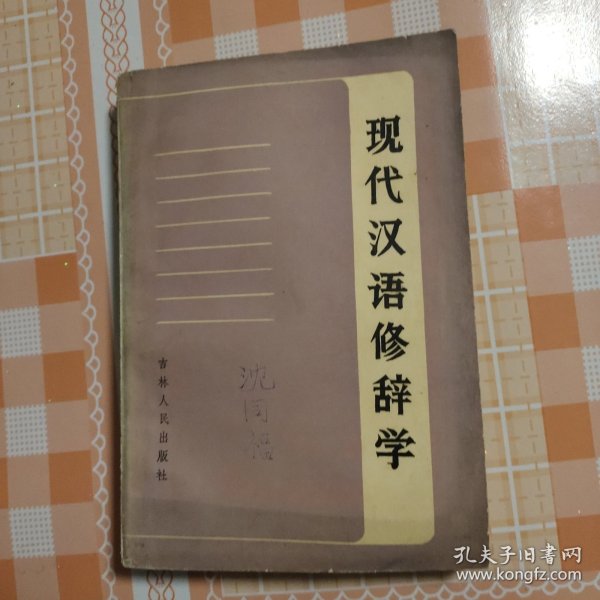 现代汉语修辞学
沈国
吉林人民出版社
孔夫子旧書网
www.kongfz.com